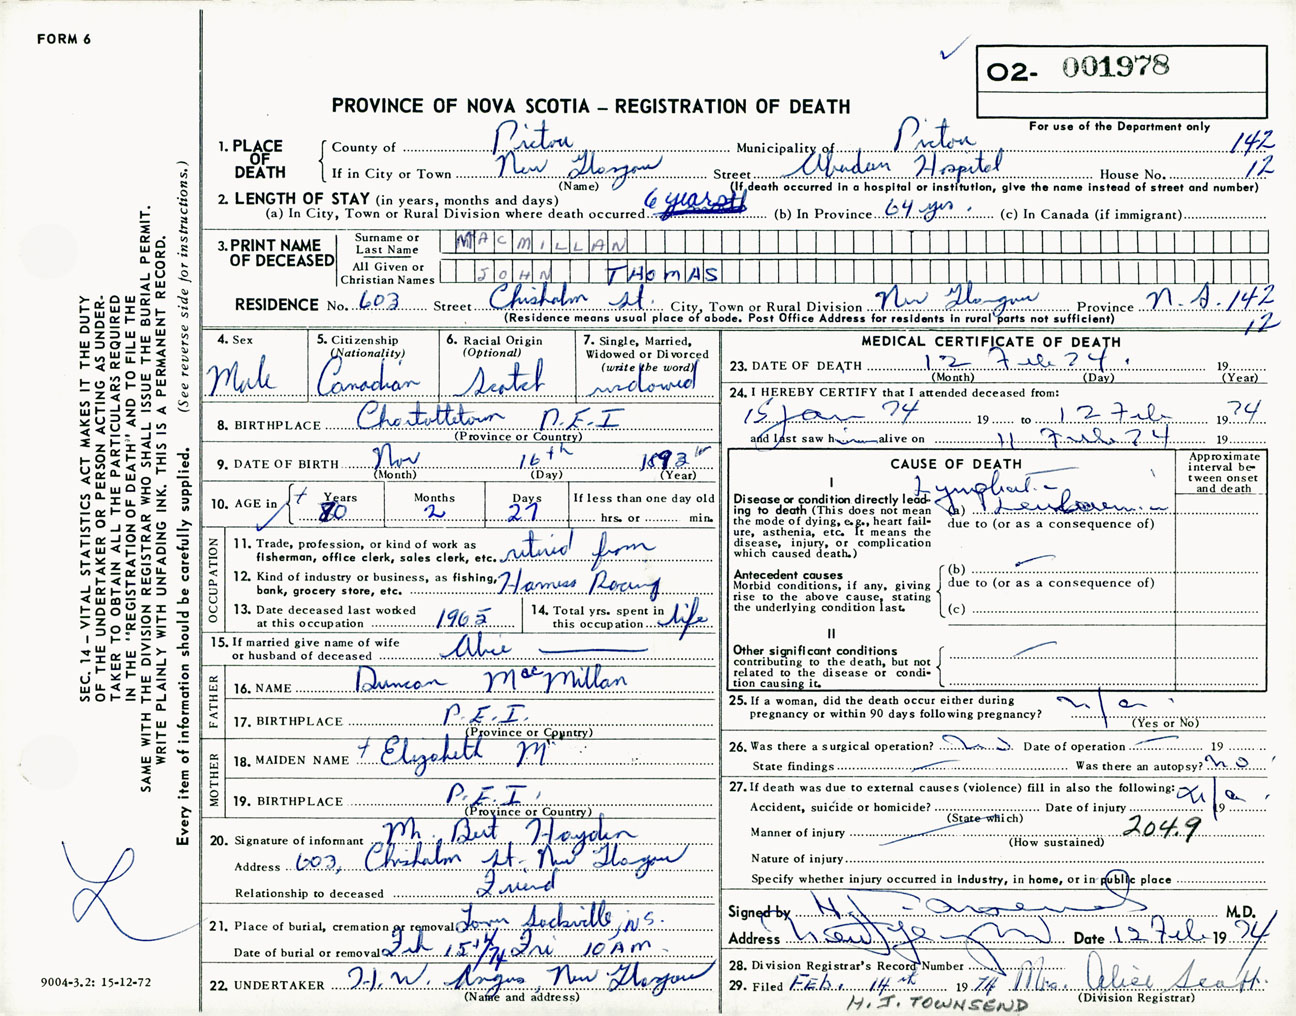 FORM 6
O2- 001978
PROVINCE OF NOVA SCOTIA – REGISTRATION OF DEATH
For use of the Department only
1. PLACE OF DEATH
County of Pictou Municipality of Pictou 142
If in City or Town New Glasgow Street Aberdeen Hospital House No. 12
(Name) (If death occurred in a hospital or institution, give the name instead of street and number)
2. LENGTH OF STAY (in years, months and days)
(a) In City, Town or Rural Division where death occurred 6 years (b) In Province 64 yrs. (c) In Canada (if immigrant)
3. PRINT NAME OF DECEASED
Surname or Last Name MACMILLAN
All Given or Christian Names JOHN THOMAS
RESIDENCE No. 603 Street Chisholm St. City, Town or Rural Division New Glasgow Province N.S. 142
(Residence means usual place of abode. Post Office Address for residents in rural parts not sufficient) 12
4. Sex
Male
5. Citizenship (Nationality)
Canadian
6. Racial Origin (Optional)
Scotch
7. Single, Married, Widowed or Divorced (write the word)
widowed
8. BIRTHPLACE Charlottetown P.E.I
(Province or Country)
9. DATE OF BIRTH Nov 16th 1893
(Month) (Day) (Year)
10. AGE in Years Months Days If less than one day old
80 2 27 hrs. or min.
OCCUPATION
11. Trade, profession, or kind of work as fisherman, office clerk, sales clerk, etc. retired from
12. Kind of industry or business, as fishing, bank, grocery store, etc. Harness Racing
13. Date deceased last worked at this occupation 1965
14. Total yrs. spent in this occupation life
15. If married give name of wife or husband of deceased Alice
FATHER
16. NAME Duncan MacMillan
17. BIRTHPLACE P.E.I.
(Province or Country)
MOTHER
18. MAIDEN NAME Elizabeth M
19. BIRTHPLACE P.E.I.
(Province or Country)
20. Signature of informant Mr. Bert Hayden
Address 603, Chisholm St. New Glasgow
Relationship to deceased Friend
21. Place of burial, cremation or removal Lower Sackville, N.S.
Date of burial or removal Feb 15th/74 Fri 10 AM
22. UNDERTAKER H.W. Angus, New Glasgow
(Name and address)
MEDICAL CERTIFICATE OF DEATH
23. DATE OF DEATH 12 Feb 74. 19
(Month) (Day) (Year)
24. I HEREBY CERTIFY that I attended deceased from:
15 Jan 74 19 to 12 Feb 1974
and last saw him alive on 11 Feb 74 19
CAUSE OF DEATH
Approximate interval between onset and death
I
Disease or condition directly leading to death (This does not mean the mode of dying, e.g., heart failure, asthenia, etc. It means the disease, injury, or complication which caused death.)
(a) Lymphatic Leukaemia
due to (or as a consequence of)
Antecedent causes
Morbid conditions, if any, giving rise to the above cause, stating the underlying condition last.
(b)
due to (or as a consequence of)
(c)
II
Other significant conditions
contributing to the death, but not related to the disease or condition causing it.
25. If a woman, did the death occur either during pregnancy or within 90 days following pregnancy? n/a
(Yes or No)
26. Was there a surgical operation? No Date of operation 19
State findings Was there an autopsy? no
27. If death was due to external causes (violence) fill in also the following: n/a
Accident, suicide or homicide? Date of injury 19
(State which)
Manner of injury 204.9
(How sustained)
Nature of injury
Specify whether injury occurred in industry, in home, or in public place
Signed by H.J. Townsend M.D.
Address New Glasgow Date 12 Feb 1974
28. Division Registrar's Record Number
29. Filed FEB. 14th 1974 Mrs. Alice Scott
(Division Registrar)
H.J. TOWNSEND
SEC. 14 – VITAL STATISTICS ACT MAKES IT THE DUTY
OF THE UNDERTAKER OR PERSON ACTING AS UNDER-
TAKER TO OBTAIN ALL THE PARTICULARS REQUIRED
IN THE "REGISTRATION OF DEATH" AND TO FILE THE
SAME WITH THE DIVISION REGISTRAR WHO SHALL ISSUE THE BURIAL PERMIT.
WRITE PLAINLY WITH UNFADING INK. THIS IS A PERMANENT RECORD.
Every item of information should be carefully supplied. (See reverse side for instructions.)
9004-3.2: 15-12-72